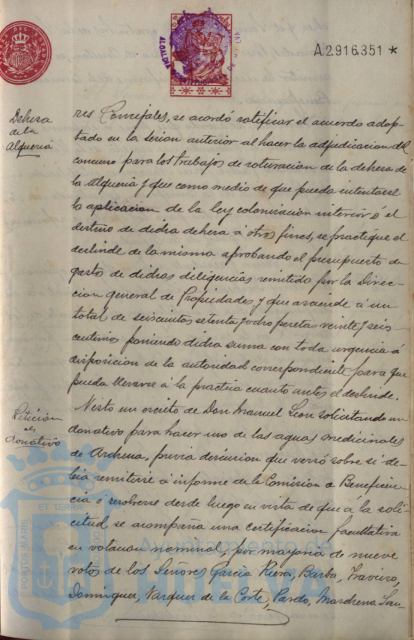 A.2.916.351 *
ALCALDIA
Dehesa
de la
Alquería
res Concejales, se acordó ratificar el acuerdo adop-
tado en la sesion anterior al hacer la adjudicacion del
concurso para los trabajos de roturacion de la dehesa de
la Alqueria y que como medio de que pueda intentarse
la aplicacion de la ley colonizacion interior ó el
destino de dicha dehesa á otros fines, se practique el
deslinde de la misma aprobando el presupuesto de
gasto de dichas diligencias remitido por la Direc-
cion general de Propiedades y que asciende á un
total de seiscientas setenta y ocho pesetas veinte y seis
centimos poniendo dicha suma con toda urgencia á
disposicion de la autoridad correspondiente para que
pueda llevarse á la practica cuanto antes el deslinde.
Petición
de
donativo
Visto un escrito de Don Manuel Leon solicitando un
donativo para hacer uso de las aguas medicinales
de Archena, previa discusion que versó sobre si de-
bia remitirse á informe de la Comision de Beneficen-
cia ó resolverse desde luego en vista de que á la soli-
citud se acompaña una certificacion facultativa
en votacion nominal, por mayoria de nueve
votos de los Señores Garcia Riera, Barba, Traviro,
Dominguez, Vazquez de la Corte, Pardo, Marchena, San-
Ayuntamiento de